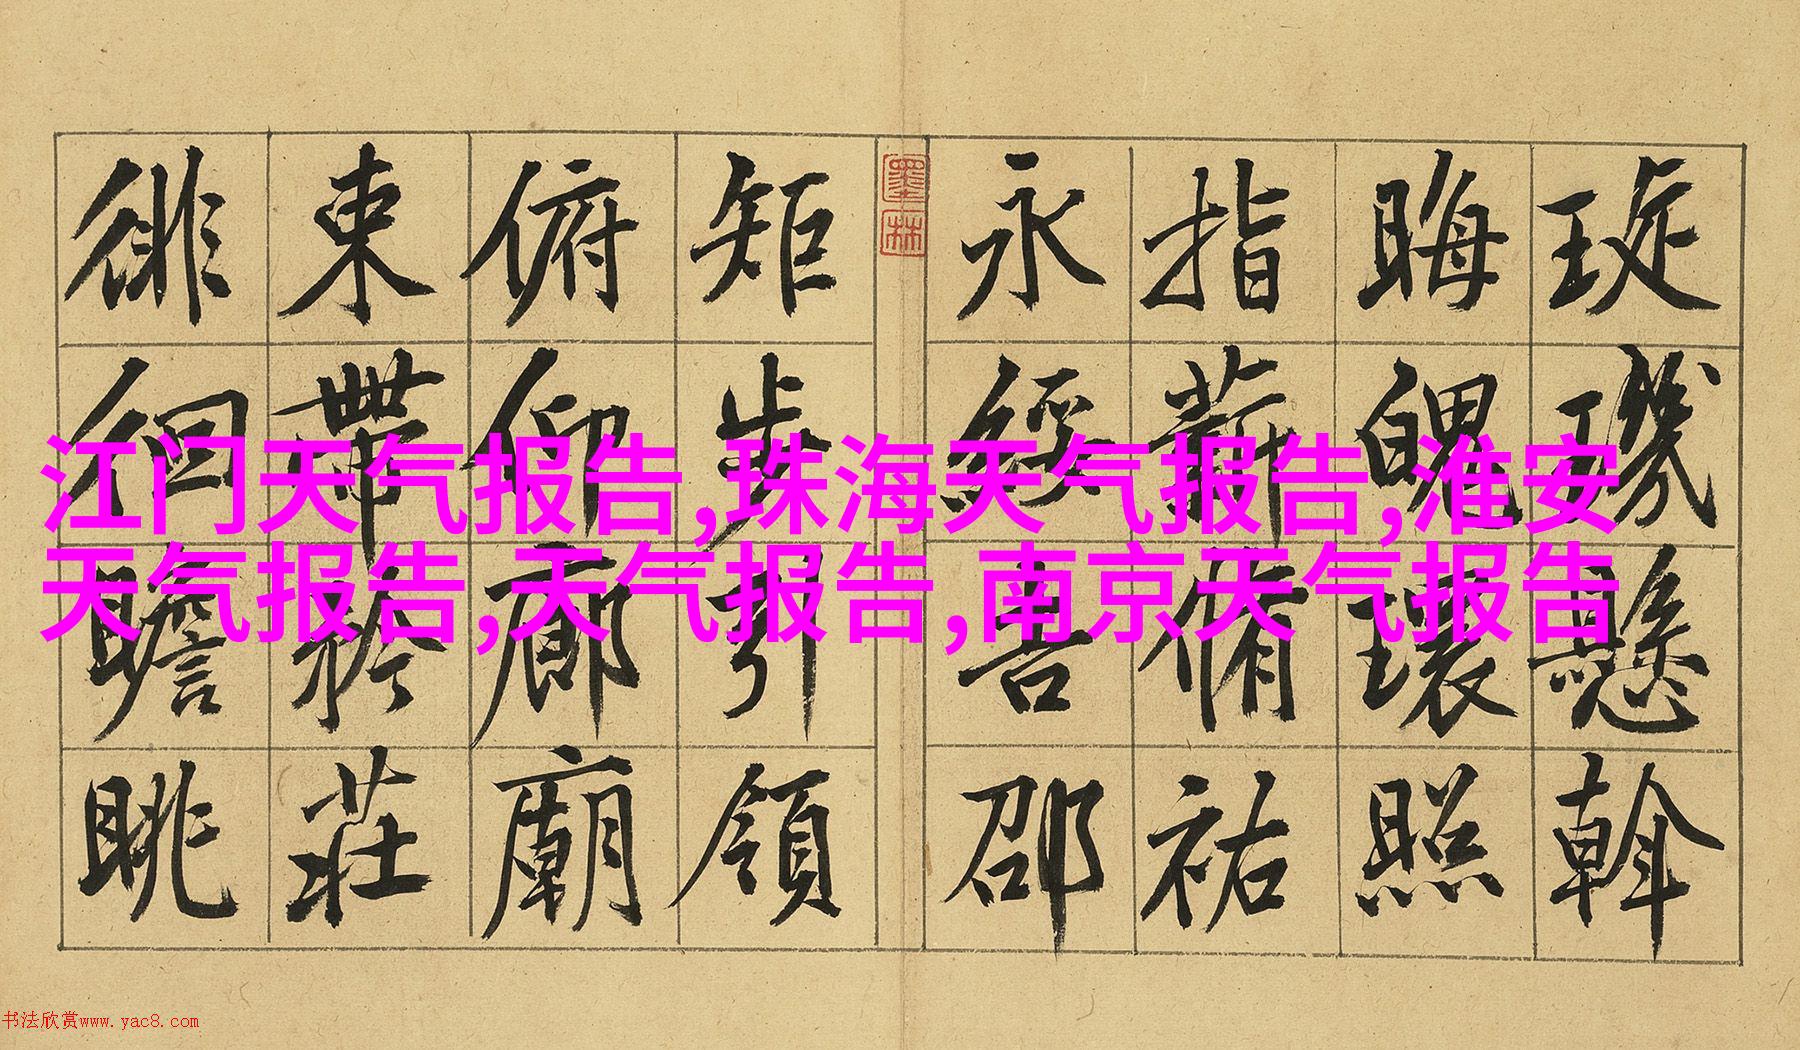 琁璣懸斡
晦魄環照
指薪脩祐
永綏吉邵
墨林
矩步引領
俯仰廊廟
束帶矜莊
徘徊瞻眺
江门天气报告,珠海天气报告,淮安
天气报告,天气报告,南京天气报告
书法欣赏www.yac8.com